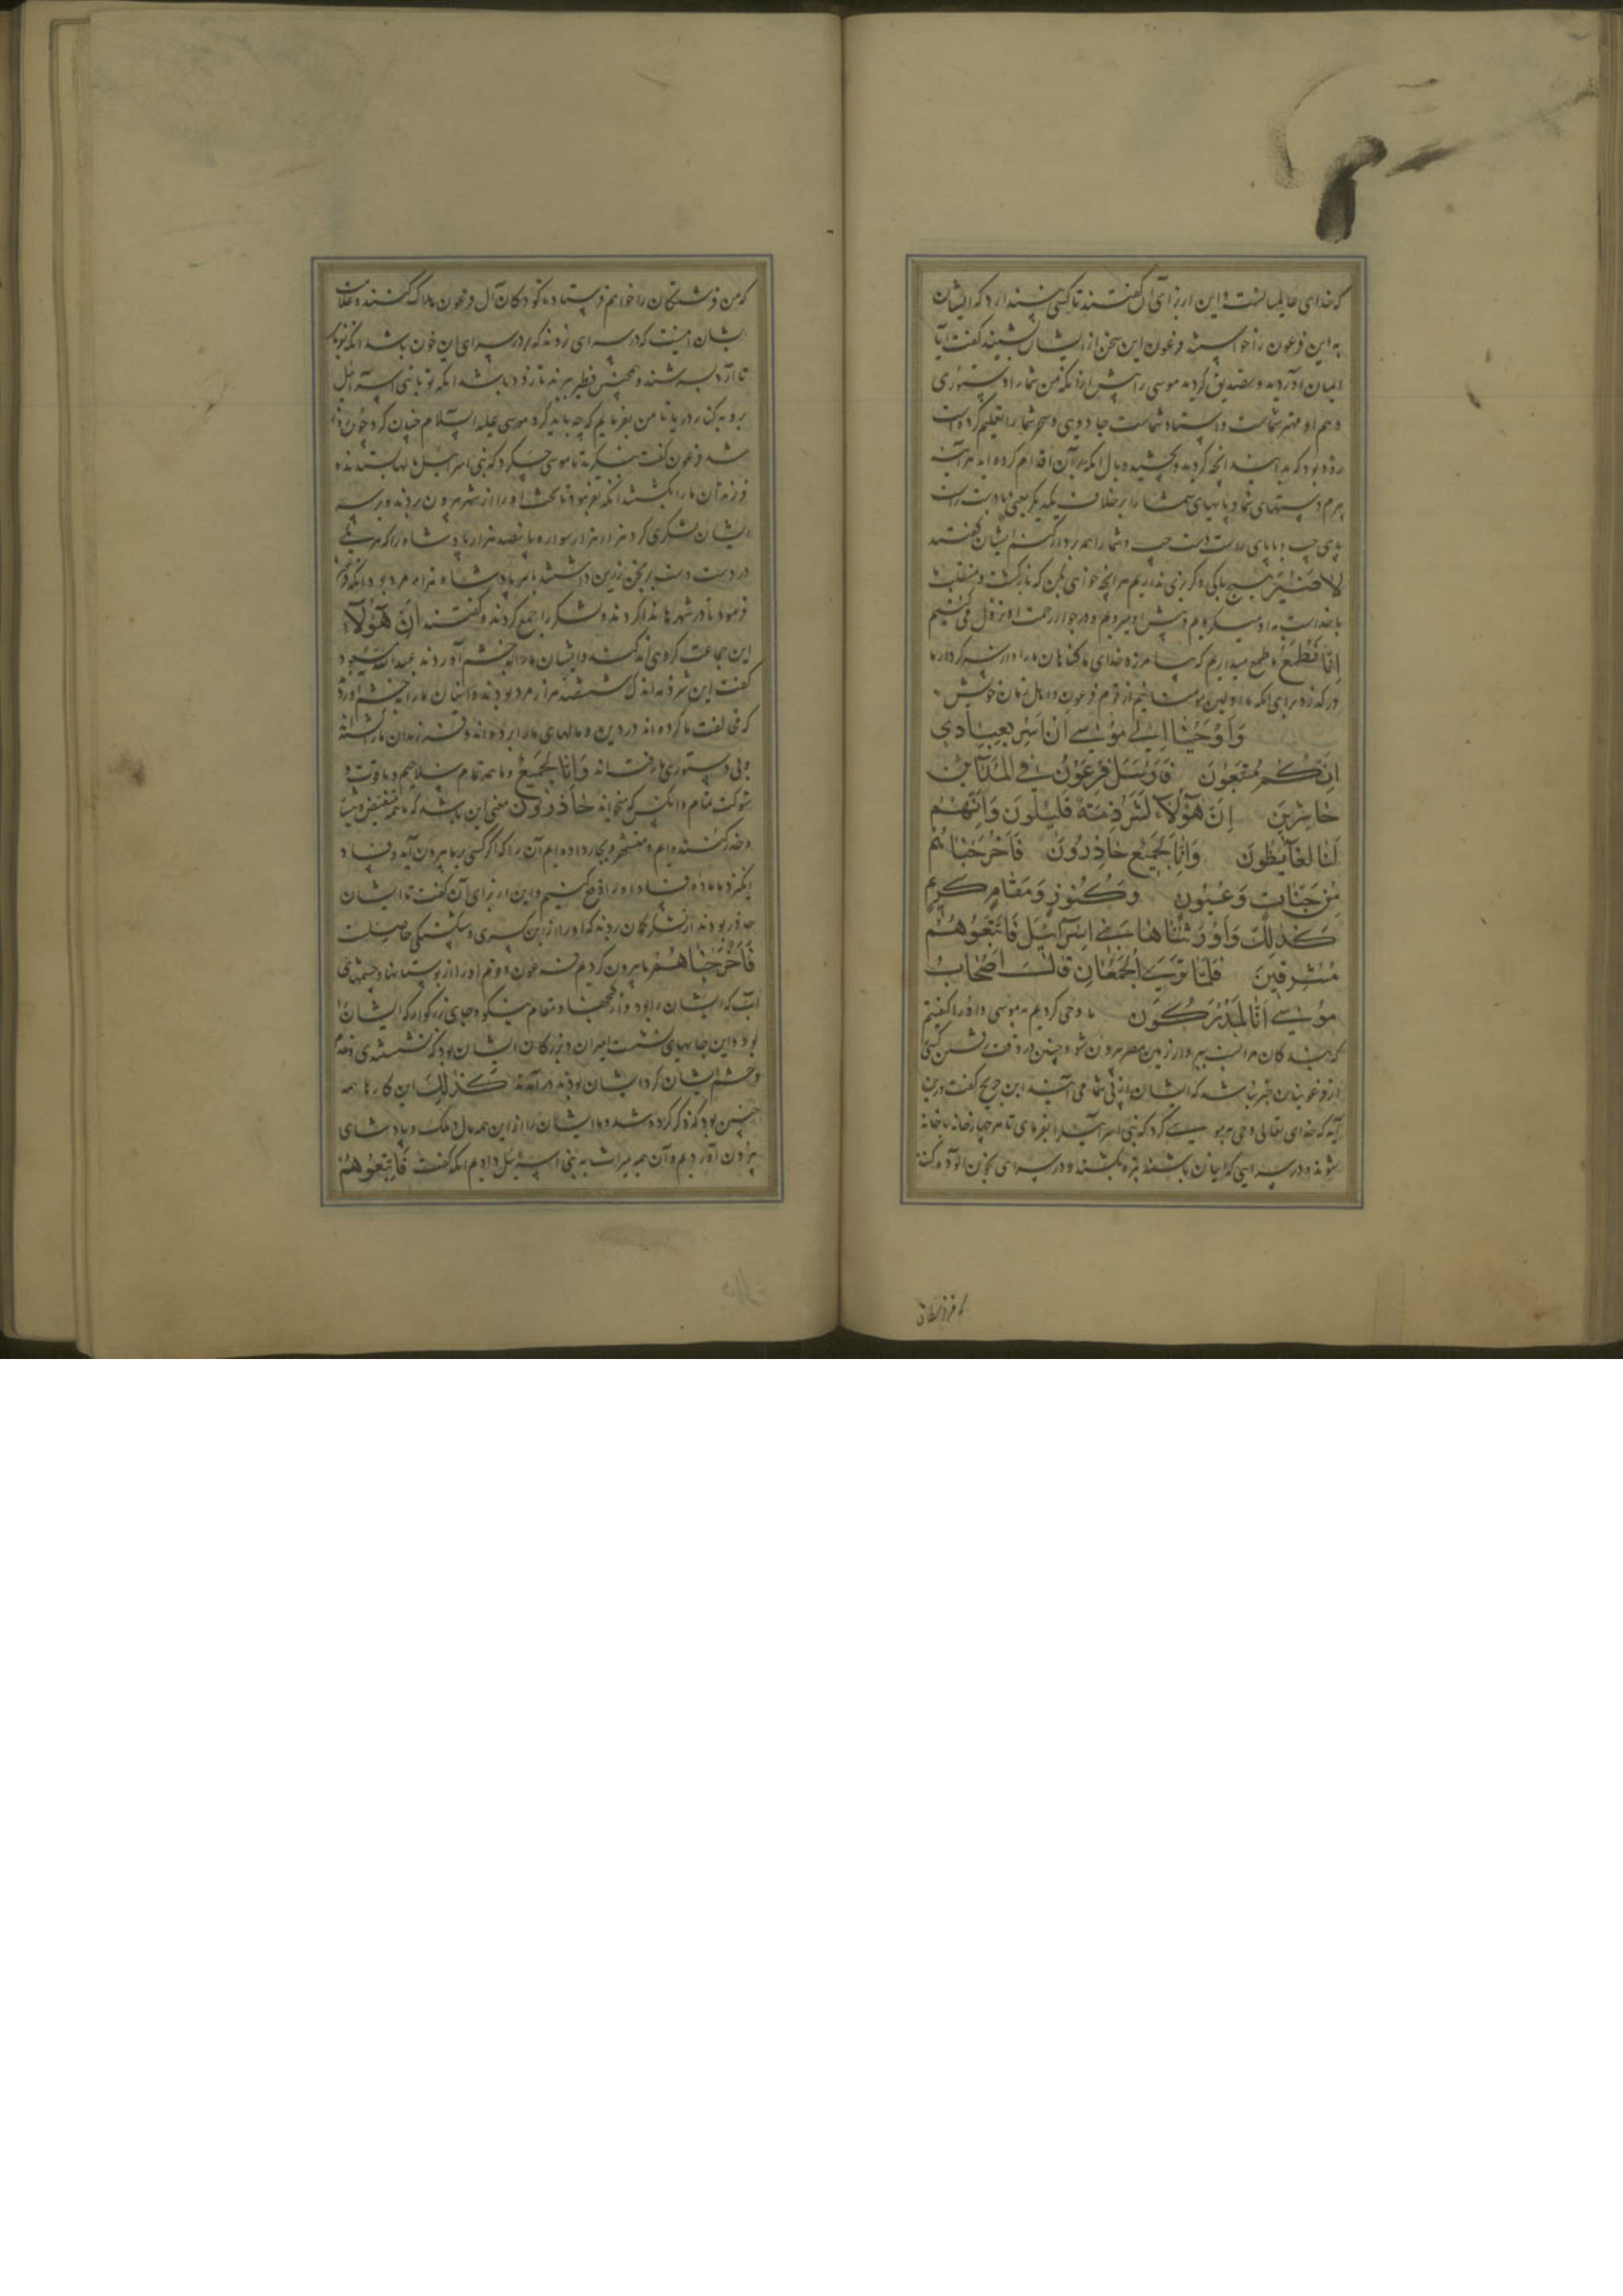 که خدای عالمیانست و این از برای آن گفتند تا کسی نپندارد که ایشان
به این فرعون را خواستند فرعون این سخن از ایشان بشنید گفت آیا
ایمان آوردید و تصدیق کردید موسی را پیش از آنکه من شما را دستوری
دهم او مهتر شماست و استاد شماست جادویی و سحر شما را تعلیم کرده است
زود بود که بدانید آنچه کردید و بچشید وبال آنکه بر آن اقدام کرده اید هر آینه
ببرم دستهای شما و پایهای شما را بر خلاف یکدیگر یعنی دست راست
پای چپ و پای راست دست چپ و شما را همه بر دار کنم ایشان گفتند
لا ضیر هیچ باکی و گزندی نداریم هر آنچه خواهی بکن که بازگشت و منقلب ما
با خداست به او میگرویم و پیش او میرویم و در جوار رحمت او نزول می‌کنیم
انا نطمع ما طمع میداریم که بیامرزد خدای ما گناهان ما را و از سر کردار ما
در گذرد برای آنکه ما اولین مومنانیم از قوم فرعون و اهل زمان خویش
وَاَوْحَیْنا اِلی مُوسی اَنْ اَسْرِ بِعِبادی
اِنَّکُمْ مُتَّبَعُونَ فَاَرْسَلَ فِرْعَوْنُ فِی الْمَدآئِنِ
حاشِرینَ اِنَّ هؤُلآءِ لَشِرْذِمَةٌ قَلیلُونَ وَاِنَّهُمْ
لَنا لَغآئِظُونَ وَاِنّا لَجَمیعٌ حاذِرُونَ فَاَخْرَجْناهُمْ
مِنْ جَنّاتٍ وَعُیُونٍ وَکُنُوزٍ وَمَقامٍ کَریمٍ
کَذلِکَ وَاَوْرَثْناها بَنی اِسْرآئیلَ فَاَتْبَعُوهُمْ
مُشْرِقینَ فَلَمّا تَرآءَ الْجَمْعانِ قالَ اَصْحابُ
مُوسی اِنّا لَمُدْرَکُونَ ما وحی کردیم به موسی و او را گفتیم
که بندگان مرا بشب ببر و از زمین مصر بیرون شو و چنین در وقت رفتن کسی
از فرعونیان خبر نباشد که ایشان از پی شما می آیند ابن جریح گفت درین
آیه که خدای تعالی وحی به موسی کرد که بنی اسرآئیل را بفرمای تا هر چهار خانه با خانه
شوند و در سرایی که ایشان باشند بره بکشند و در سرای بخون آلوده کنند
که فرشتگان
که من فرشتگان را خواهم فرستاد تا کودکان آل فرعون هلاک کنند و علامت
ایشان آنست که در سرای نروند که بر در سرای این خون باشد آنکه بفرمای
تا آرد بسرشند و همچنین فطیر بپزند تا زود باشد آنکه تو با بنی اسرآئیل
برو به کنار دریا تا من بفرمایم که چه باید کرد موسی علیه السلام چنان کرد چون روز
شد فرعون گفت بنگرید تا موسی چه کرد که بنی اسرآئیل مالها بستدند و
فرزندان ما را بکشتند آنکه بفرمود تا او را از شهر بیرون بردند و بر پی
ایشان لشکری کرد هزار هزار سواره با پانصد هزار پادشاه را که هر یکی
در دست دست برنجن زرین داشتند با هر پادشاه هزار مرد بود آنکه فرعون
فرمود تا در شهرها ندا کردند و لشکر را جمع کردند و گفتند اِنَّ هؤُلآءِ
این جماعت گروهی اندکند و ایشان ما را بخشم آوردند عبدالله مسعود
گفت این شرذمه اندک ششصد هزار مرد بودند و ایشان ما را بخشم آوردند
که مخالفت ما کرده اند در دین و مالهای ما را برده اند و فرزندان ما کشته
و بی دستوری ما رفته اند وَاِنّا لَجَمیعٌ و ما همه تمام سلاحیم و با قوت و
شوکت تمام و آنکس که بخواند حاذرون معنی این باشد که ما متیقظ و بیدار
و حذر کننده ایم
ما ماده فساد او را دفع کنیم و این از برای آن گفت تا ایشان
فَاَخْرَجْناهُمْ ما بیرون کردیم فرعون و قوم او را از بوستانها و چشمهای
آب که ایشان را بود و از گنجها و مقام نیکو و جای بزرگوار که ایشان را
بود و این جایهای نشست امیران و بزرگان ایشان بود که نشستندی و خدم
و حشم ایشان گرد ایشان بودند در آمدند کَذلِکَ این کارها همه
چنین بود که ذکر کرده شد و ما ایشان را از این همه مال و ملک و پادشاهی
بیرون آوردیم و آن همه میراث به بنی اسرآئیل دادیم آنکه گفت فَاَتْبَعُوهُمْ